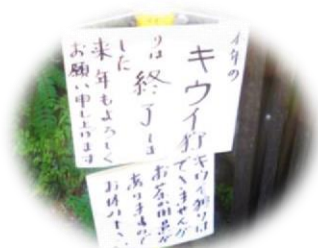 今年の
キウイ狩
りは終了しま
した
来年もよろしく
お願い申し上げます
キウイ狩りは
できませんが
お茶の用意が
ありますので
お休み下さい